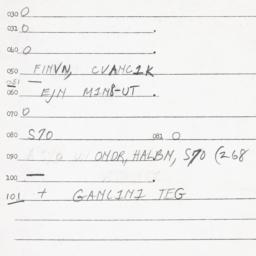 030 0
031 0
040 0
050 FINVN, CVANCIK
051 —
060 EJN MINS-UT
070 0
080 S70 081 0
090 ONDR, HALBN, S70 (268
100 —
101 + GANCINI TEG